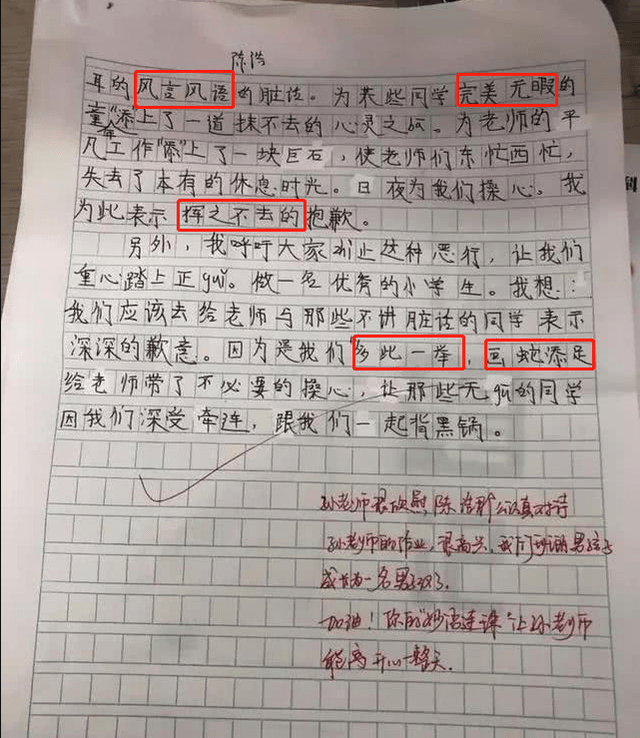 陈浩
耳的风言风语的脏话。为某些同学完美无暇的
童年"添"上了一道抹不去的心灵之
为老师的平
凡工作"添"上了一块巨石，使老师们东忙西忙，
失去了本有的休息时光。日夜为我们操心。我
为此表示挥之不去的抱歉。
另外，我呼吁大家制止这种恶行，让我们
重心踏上正gui。做一名优秀的小学生。我想：
我们应该去给老师与那些不讲脏话的同学表示
深深的歉意。因为是我们多此一举，画蛇添足
给老师带了不必要的操心，让那些无gu的同学
因我们深受牵连，跟我们一起背黑锅。
孙老师很欣慰，陈浩能认真对待
孙老师的作业，很高兴，我们班的男孩子
成长为一名男子汉了。
加油！你的"妙语连珠"让孙老师
能高开心一整天。